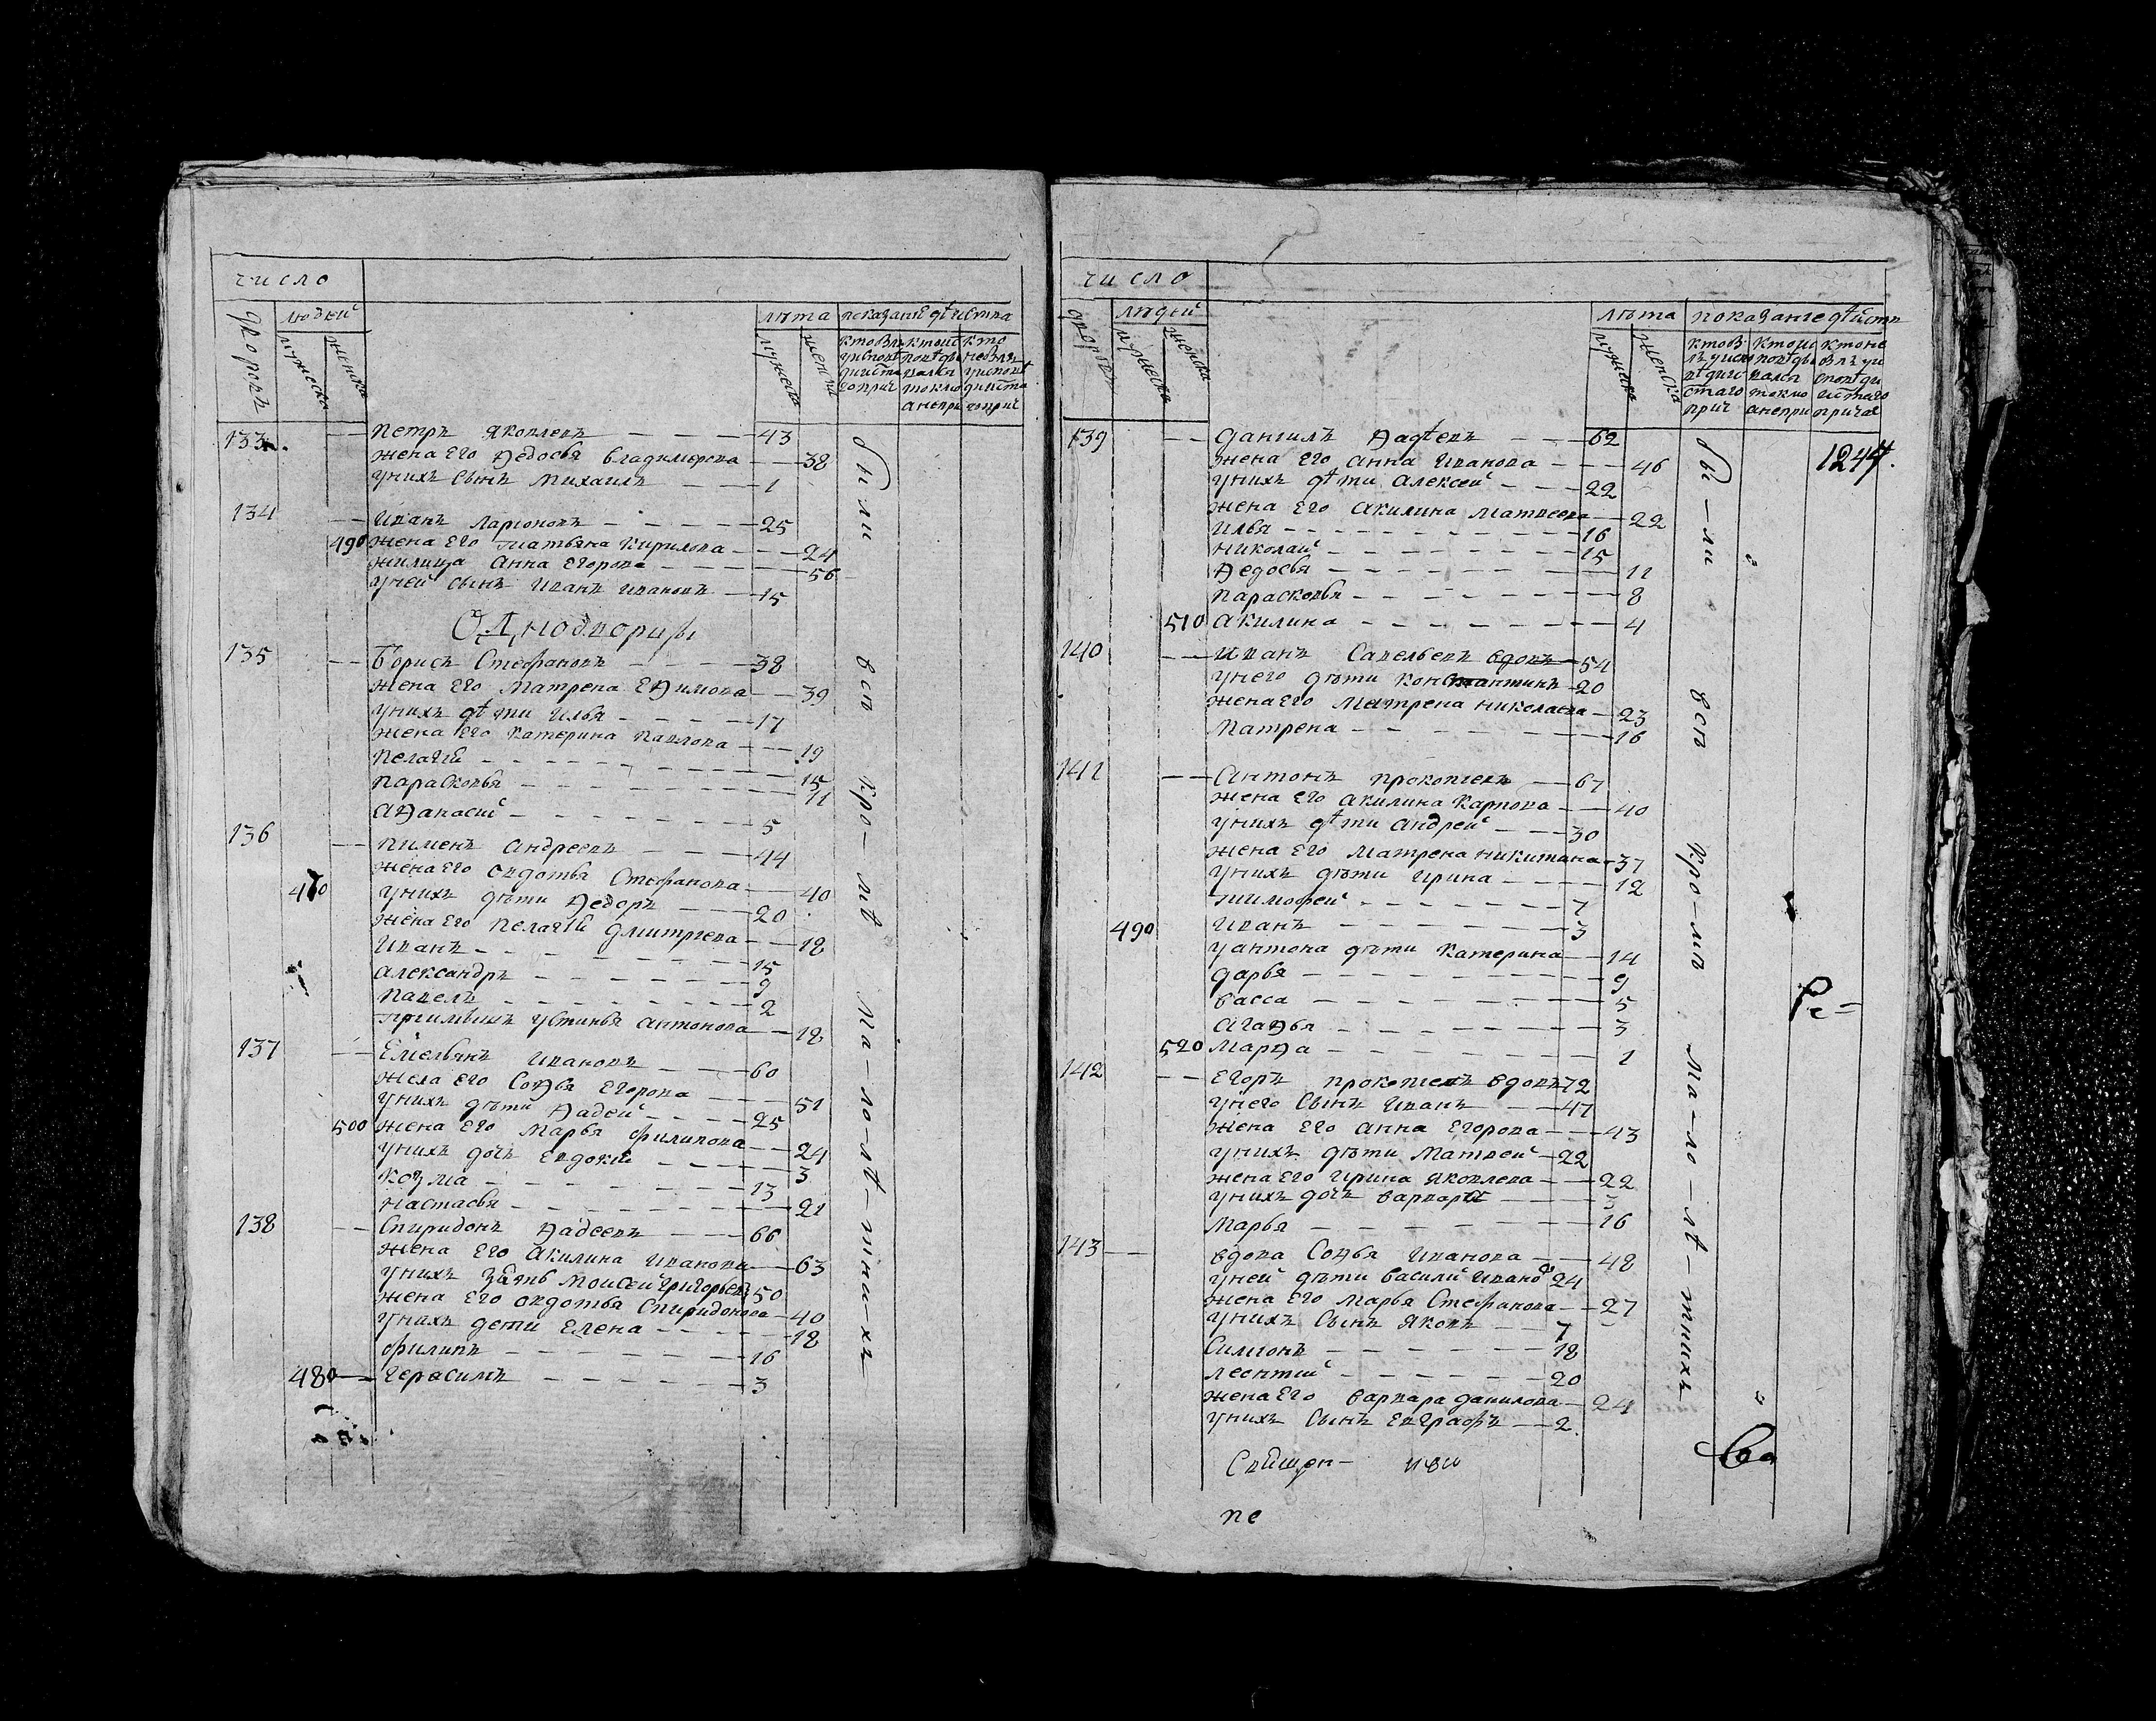 число
дворовъ
людей
мужеска
женска
лѣта
мужеска
женска
показание дѣиства
133 Петръ Яковлевъ 43
жена его Ѳедосья Владимерова 38
унихъ сынъ Михаилъ 1
134 Иванъ Ларионовъ 25
490 жена его Татьяна Кирилова 24
жилица Анна Егорова 56
уней сынъ Иванъ Ивановъ 15
Однодворцы
135 Борисъ Стефановъ 38
жена его Матрена Еѳимова 39
унихъ дѣти Илья 17
жена его Катерина Павлова 19
Пелагѣй 15
Парасковья 11
Аѳанасий 5
136 Пименъ Андреевъ 44
жена его Овдотья Стефанова 40
470 унихъ дѣти Ѳедоръ 20
жена его Пелагѣй Дмитриева 18
Иванъ 15
Александръ 9
Павелъ 2
приимышъ Устинья Антонова 18
137 Емельянъ Ивановъ 60
жена его Соѳья Егорова 51
унихъ дѣти Ѳадей 25
500 жена его Марья Филипова 24
унихъ дочь Евдокий 3
Козма 13
Настасья 21
138 Спиридонъ Ѳадеевъ 66
жена его Акилина Иванова 63
унихъ зять Моисей Григорьевъ 50
жена его Овдотья Спиридонова 40
унихъ дети Елена 18
Филипъ 16
480 Герасимъ 3
были всѣ кромѣ малолѣтнихъ
число
дворовъ
людей
мужеска
женска
лѣта
мужеска
женска
показание дѣиств
1244.
139 Даниилъ Ѳадѣевъ 62
жена его Анна Иванова 46
унихъ дѣти Алексей 22
жена его Акилина Матвеева 22
Илья 16
Николай 15
Ѳедосья 11
Парасковья 8
510 Акилина 4
140 Иванъ Савельевъ вдовъ 54
унего дѣти Константинъ 20
жена его Матрена Николаева 23
Матрена 16
141 Антонъ Прокопиевъ 67
жена его Акилина Карпова 40
унихъ дѣти Андрей 30
жена его Матрена Никитина 37
унихъ дѣти Ирина 12
Тимофей 7
490 Иванъ 3
уАнтона дѣти Катерина 14
Дарья 9
Васса 5
Агаѳья 3
520 Марѳа 1
142 Егоръ Прокопиевъ вдовъ 72
унего сынъ Иванъ 47
жена его Анна Егорова 43
унихъ дѣти Матвей 22
жена его Ирина Яковлева 22
унихъ дочь Варвара 3
Марья 16
143 вдова Соѳья Иванова 48
уней дѣти Василий Иванов 24
жена его Марья Стефанова 27
унихъ сынъ Яковъ 7
Симионъ 18
Леонтий 20
жена его Варвара Данилова 24
унихъ сынъ Евграфъ 2
были всѣ кромѣ малолѣтнихъ